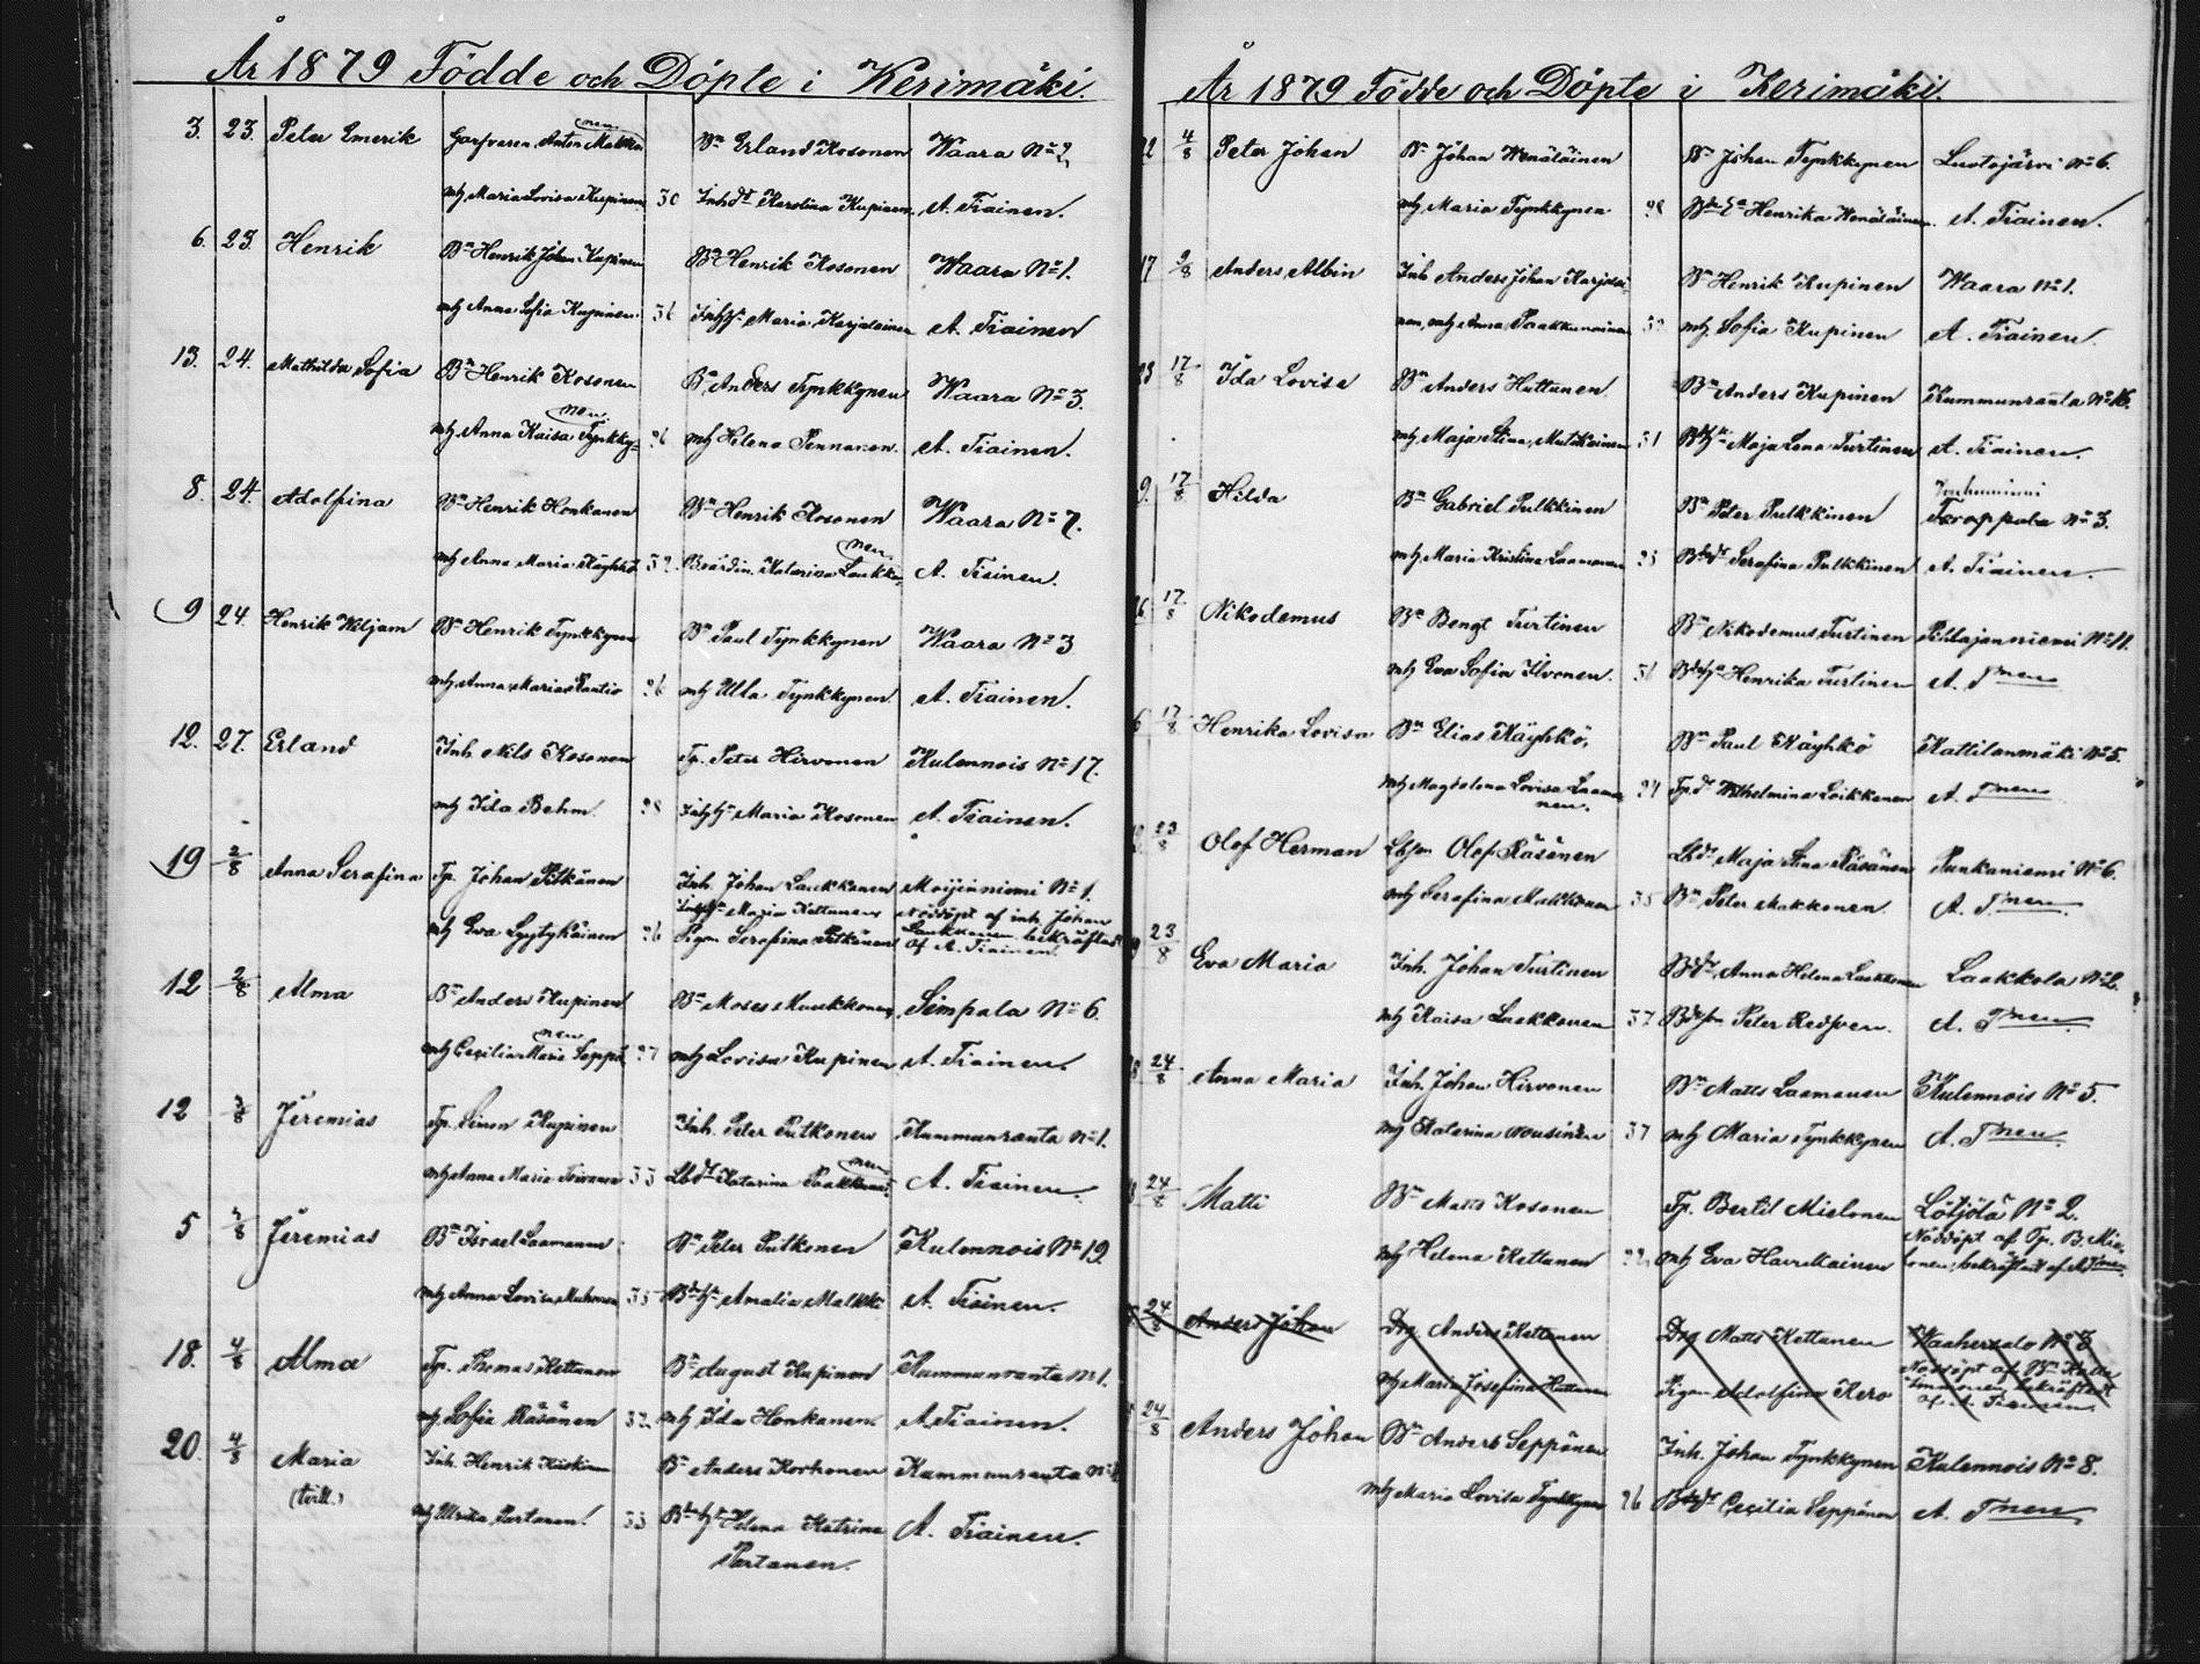 År 1879 Födde och Döpte i Kerimäki.
3. 23. Peter Emerik Garfvaren Anton Makko= nen Bn Erland Kosonen Waara No 2
mh Maria Lovisa Kupinen 30 Inhdr Karolina Kupinen A. Tiainen.
6. 23. Henrik Bn Henrik Johan Kupinen Bn Henrik Kosonen Waara No 1.
mh Anna Sofia Kupinen 36 Maria Karjalainen A. Tiainen
13. 24. Mathilda Sofia Bn Henrik Kosonen Bn Anders Tynkkynen Waara No 3.
mh Anna Kaisa Tynkky= nen 26 mh Helena Pennanen. A. Tiainen.
8. 24. Adolfina Bn Henrik Honkanen Bn Henrik Kosonen Waara No 7.
mh Anna Maria Käyhkö 32. Katarina Laukka= nen A. Tiainen.
9 24. Henrik Weljam Bn Henrik Tynkkynen Bn Paul Tynkkynen Waara No 3
mh Anna Maria Rautio 26 mh Ulla Tynkkynen A. Tiainen.
12. 27. Erland Inh. Nils Kosonen Tp. Peter Hirvonen Kulennois No 17.
mh Ida Behm. 28 Maria Kosonen A. Tiainen.
19 2/8 Anna Serafina Tp. Johan Pitkänen Inh. Johan Laukkanen Moijinniemi No 1.
Maria Kettunen Nöddöpt af inh. Johan
mh Eva Lyytykäinen 26 Pigan Serafina Pitkänen Laukkanen bekräftad
af A. Tiainen.
12 2/8 Alma Bn Anders Kupinen Bn Moses Muukkonen Simpala No 6.
mh Cecilia Maria Seppä= nen 27 mh Lovisa Kupinen A. Tiainen.
12 3/8 Jeremias Tp. Simon Kupinen Inh. Peter Putkonen Kummunranta No 1.
mh Anna Maria Toivanen 33 Lbdr Katarina Paakkunai= nen A. Tiainen.
5 3/8 Jeremias Bn Israel Laamanen Bn Peter Putkonen Kulennois No 19.
mh Anna Lovisa Muhonen 35 Amalia Malkki A. Tiainen.
18. 4/8 Alma Tp. Thomas Kettunen Bn August Kupinen Kummunranta No 1.
mh Sofia Räsänen 32 mh Ida Honkanen A. Tiainen.
20. 4/8 Maria Inh. Henrik Bn Anders Korhonen Kummunranta
(tvill.) mh Ulrika Partanen. 33 Helena Katrina A. Tiainen.
Partanen.
År 1879 Födde och Döpte i Kerimäki.
22 4/8 Peter Johan Bn Johan Wenäläinen Bn Johan Tynkkynen Luotojärvi No 6.
mh Maria Tynkkynen 28 Henrika Wenäläinen. A. Tiainen.
17 9/8 Anders Albin Inh. Anders Johan Karjalai= Bn Henrik Kupinen Waara No 1.
nen, mh Anna Paakkunainen 32 mh Sofia Kupinen A. Tiainen.
23 17/8 Ida Lovisa Bn Anders Huttunen Bn Anders Kupinen Kummunranta No 16.
mh Maja Stina Mutikainen 31 Maja Lena Turtinen A. Tiainen.
9. 17/8 Hilda Bn Gabriel Pulkkinen Bn Peter Pulkkinen Jouhenniemi
Toroppala No 3.
mh Maria Kristina Laamanen 25 Serafina Pulkkinen A. Tiainen.
26. 17/8 Nikodemus Bn Bengt Turtinen Bn Nikodemus Turtinen Pihlajanniemi No 11.
mh Eva Sofia Ilvonen. 36 Henrika Turtinen A. Tnen
6 17/8 Henrika Lovisa Bn Elias Käyhkö, Bn Paul Käyhkö Kattilanmäki No 5.
mh Magdalena Lovisa Laama= nen. 24 Tp.dr Wilhelmina Loikkanen A. Tnen
23/8 Olof Herman Lbson Olof Räsänen Lbdr Maja Stina Räsänen Punkaniemi No 6.
mh Serafina Makkonen 35 Bn Peter Makkonen. A. Tnen.
23/8 Eva Maria Inh. Johan Turtinen Anna Helena Laukkanen Laakkola No 2.
mh Kaisa Laukkanen 37 Peter Redsven. A. Tnen
24/8 Anna Maria Inh. Johan Hirvonen Bn Matts Laamanen Kulennois No 5.
mh Katarina Nousiainen 37 mh Maria Tynkkynen A. Tnen.
24/8 Matti Bn Matts Kosonen Tp. Bertil Mielonen Lötjölä No 2.
Nöddöpt af Tp. B. Mie=
mh Helena Kettunen 22 mh Eva Havukainen lonen, bekräftad af A. Tnen.
24/8 Anders Johan Drg. Anders Kettunen Drg Matts Kettunen Waahersalo No 3
Nöddöpt af
mh Maria Josefina Huttunen Pigan Adolfina Kero bekräftad
af A. Tiainen.
24/8 Anders Johan Bn Anders Seppänen Inh. Johan Tynkkynen Kulennois No 8.
mh Maria Lovisa Tynkkynen 26 Cecilia Seppänen A. Tnen